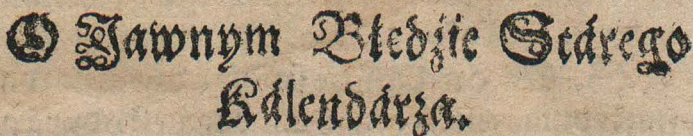 O Jawnym Błedzie Stárego
Kálendárza.